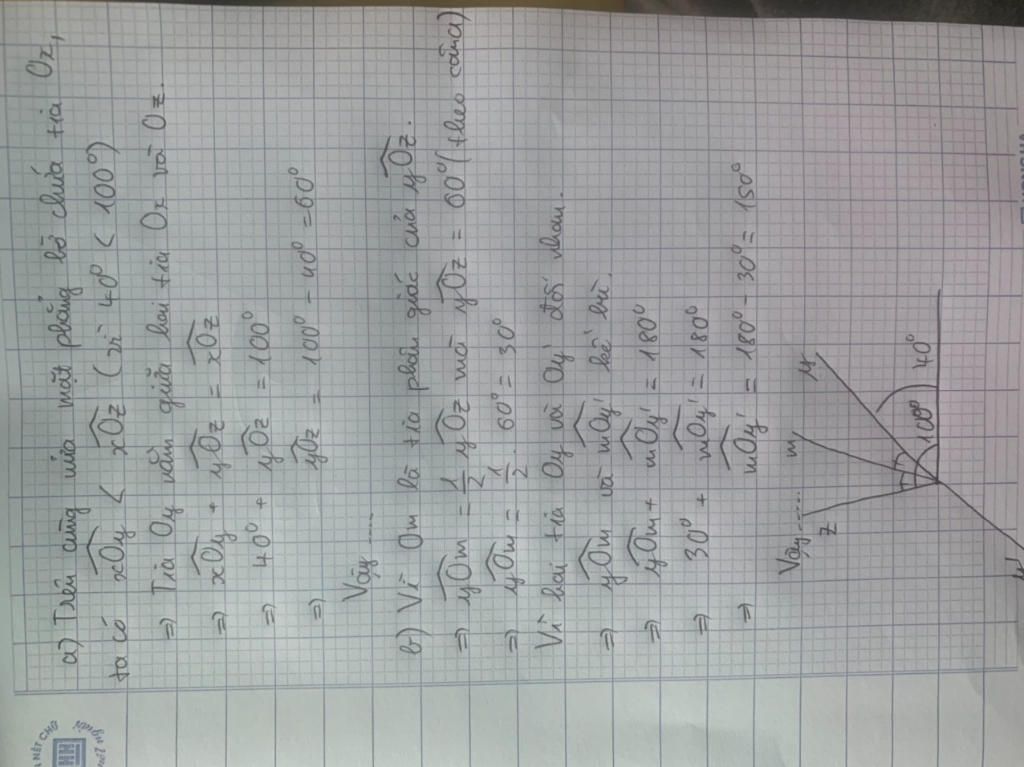 a) Trên cùng nửa mặt phẳng bờ chứa tia Ox,
ta có xOy < xOz (vì 40° < 100°)
=> Tia Oy nằm giữa hai tia Ox và Oz.
=> xOy + yOz = xOz
=> 40° + yOz = 100°
=> yOz = 100° - 40° = 60°
Vậy ....
b) Vì Om là tia phân giác của yOz.
=> yOm = 1/2 yOz mà yOz = 60° (theo câu a)
=> yOm = 1/2 . 60° = 30°
Vì hai tia Oy và Oy' đối nhau.
=> yOm và mOy' kề bù.
=> yOm + mOy' = 180°
=> 30° + mOy' = 180°
=> mOy' = 180° - 30° = 150°
Vậy....
z m y
100° 40°
y'
NÉT CHỮ